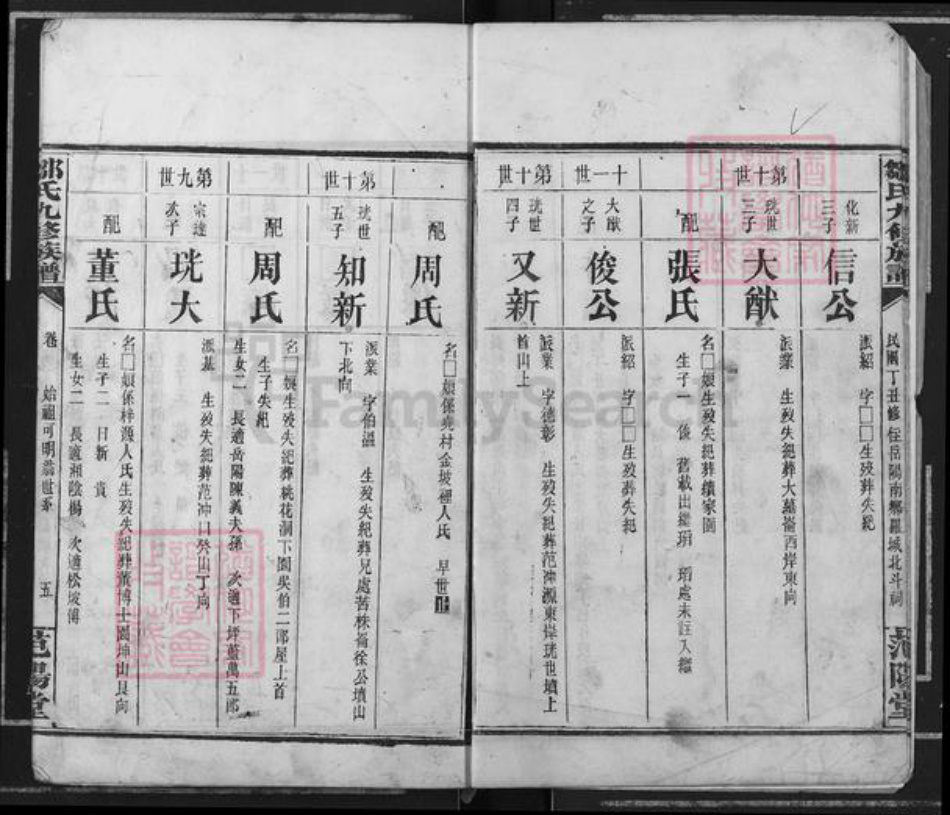 鄒氏九修族譜
民國丁丑修 住岳陽南鄉羅城北斗祠
范陽堂
化新三子
信公
派紹 字□□生歿葬失紀
第十世
珖世三子
大猷
派業 生歿失紀葬大墓崙西岸東向
配
張氏
名□娘生歿失紀葬續家園
生子一 俊 舊載出繼琄 琄處未註入繼
十一世
大猷之子
俊公
派紹 字□□生歿葬失紀
第十世
珖世四子
又新
派業 字德彰 生歿失紀葬范沖源東岸珖世墳上
首山上
配
周氏
名□娘係堯村金坡裡人氏 早世止
第十世
珖世五子
知新
派業 字伯溫 生歿失紀葬兄處苦株崙徐公墳山
下北向
配
周氏
名□娘生歿失紀葬桃花洞下園吳伯二郎屋上首
生子失紀
生女二 長適岳陽陳義夫孫 次適下坪藍萬五郎
第九世
宗達次子
珖大
派基 生歿失紀葬范沖口癸山丁向
配
董氏
名□娘係梓源人氏生歿失紀葬黃博士園坤山艮向
生子二 日新 貴
生女二 長適湘陰楊 次適松坡傅
鄒氏九修族譜
卷 始祖可明翁世系 五
范陽堂
FamilySearch